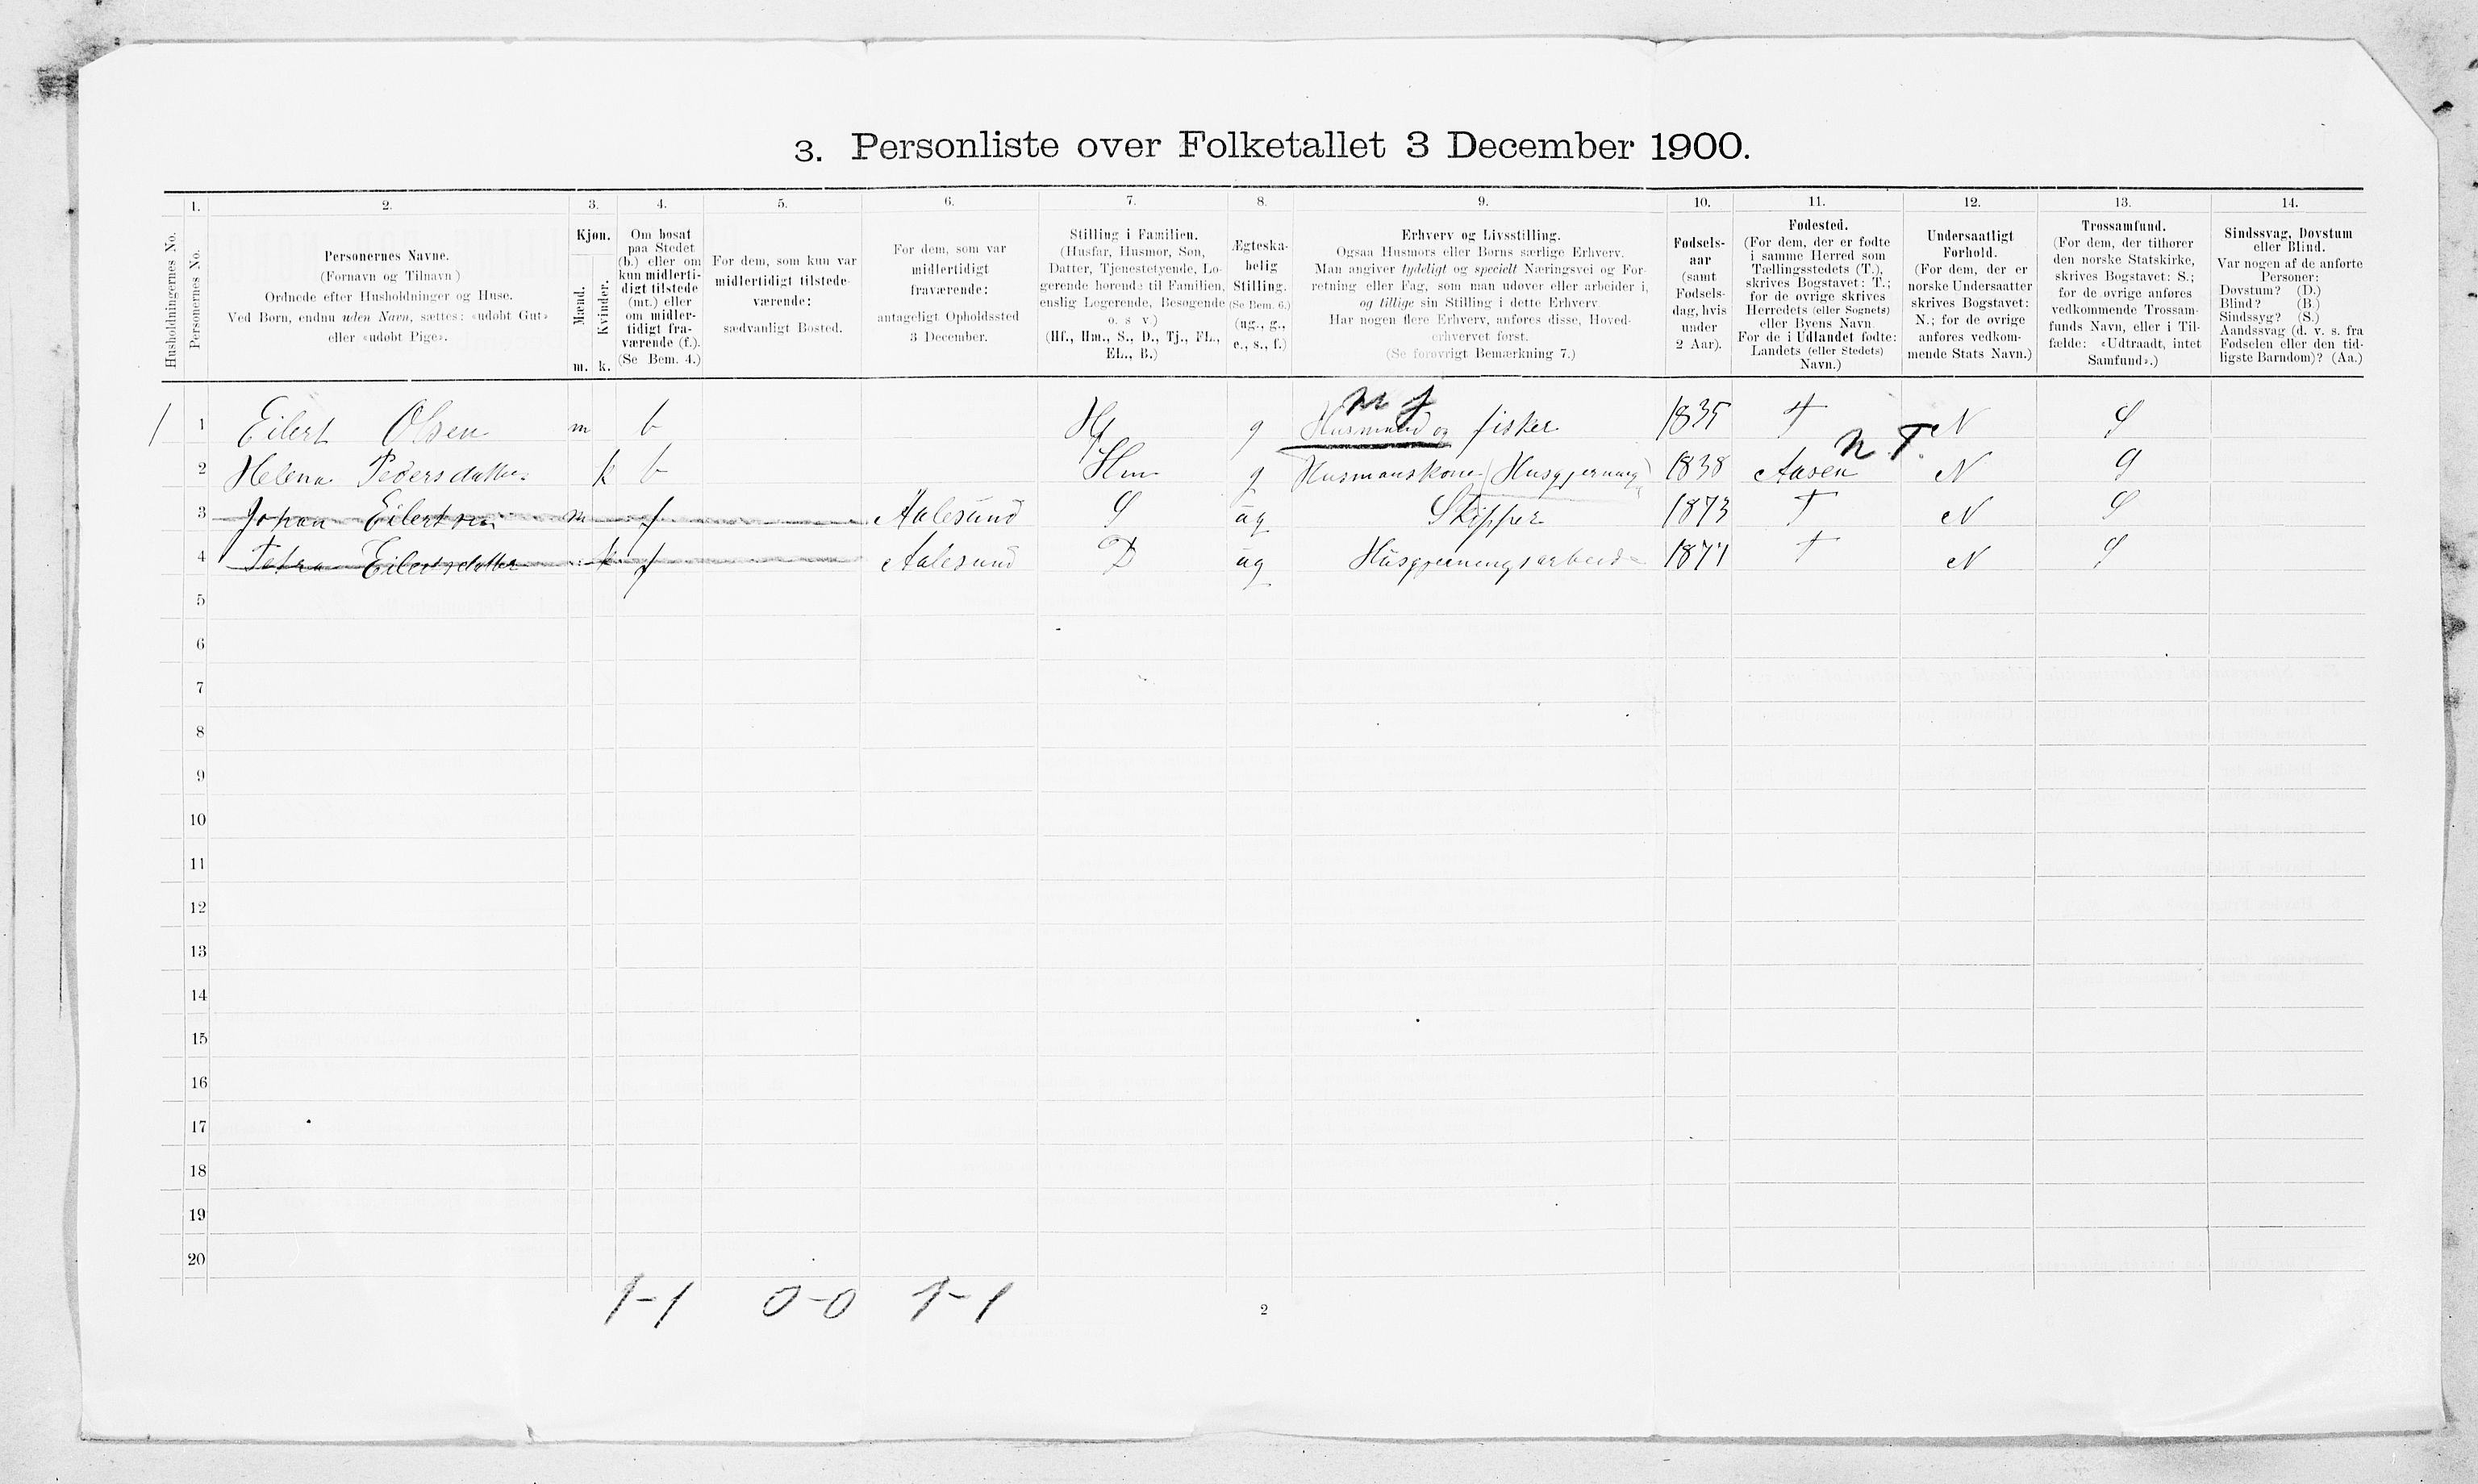 3. Personliste over Folketallet 3 December 1900.
1. 2. 3. 4. 5. 6. 7. 8. 9. 10. 11. 12. 13. 14.
Husholdningernes No.
Personernes No.
Personernes Navne.
(Fornavn og Tilnavn)
Ordnede efter Husholdninger og Huse.
Ved Børn, endnu uden Navn, sættes: «udøbt Gut»
eller «udøbt Pige».
Kjøn.
Mænd.
Kvinder.
m. k.
Om bosat
paa Stedet
(b.) eller om
kun midlerti-
digt tilstede
(mt.) eller
om midler-
tidigt fra-
værende (f.).
(Se Bem. 4.)
For dem, som kun var
midlertidigt tilstede-
værende:
sædvanligt Bosted.
For dem, som var
midlertidigt
fraværende:
antageligt Opholdssted
3 December.
Stilling i Familien.
(Husfar, Husmor, Søn,
Datter, Tjenestetyende, Lo-
gerende hørende til Familien,
enslig Logerende, Besøgende
o. s. v.)
(Hf., Hm., S., D., Tj., FL.,
EL., B.)
Ægteska-
belig
Stilling.
(Se Bem. 6.)
(ug., g.,
e., s., f.)
Erhverv og Livsstilling.
Ogsaa Husmors eller Børns særlige Erhverv.
Man angiver tydeligt og specielt Næringsvei og For-
retning eller Fag, som man udøver eller arbeider i,
og tillige sin Stilling i dette Erhverv.
Har nogen flere Erhverv, anføres disse, Hoved-
erhvervet først.
(Se forøvrigt Bemærkning 7.)
Fødsels-
aar
(samt
Fødsels-
dag, hvis
under
2 Aar).
Fødested.
(For dem, der er fødte
i samme Herred som
Tællingsstedets (T.),
skrives Bogstavet: T.;
for de øvrige skrives
Herredets (eller Sognets)
eller Byens Navn.
For de i Udlandet fødte:
Landets (eller Stedets)
Navn.)
Undersaatligt
Forhold.
(For dem, der er
norske Undersaatter
skrives Bogstavet:
N.; for de øvrige
anføres vedkom-
mende Stats Navn.)
Trossamfund.
(For dem, der tilhører
den norske Statskirke,
skrives Bogstavet: S.;
for de øvrige anføres
vedkommende Trossam-
funds Navn, eller i Til-
fælde: «Udtraadt, intet
Samfund».)
Sindssvag, Døvstum
eller Blind.
Var nogen af de anførte
Personer:
Døvstum? (D.)
Blind? (B.)
Sindssyg? (S.)
Aandssvag (d. v. s. fra
Fødselen eller den tid-
ligste Barndom)? (Aa.)
1 1 Eilert Olsen m b Hf g Husmand og fisker 1835 T N S
n T.
2 Helena Pedersdatter k b Hm g Husmanskone (Husgjerning) 1838 Aasen N S
3 Johan Eilertsen m f Aalesund S ug Skipper 1873 T N S
4 Petra Eilertsdatter k f Aalesund D ug Husgjerningsarbeide 1877 T N S
5
6
7
8
9
10
11
12
13
14
15
16
17
18
19
20
1-1 0-0 1-1
2